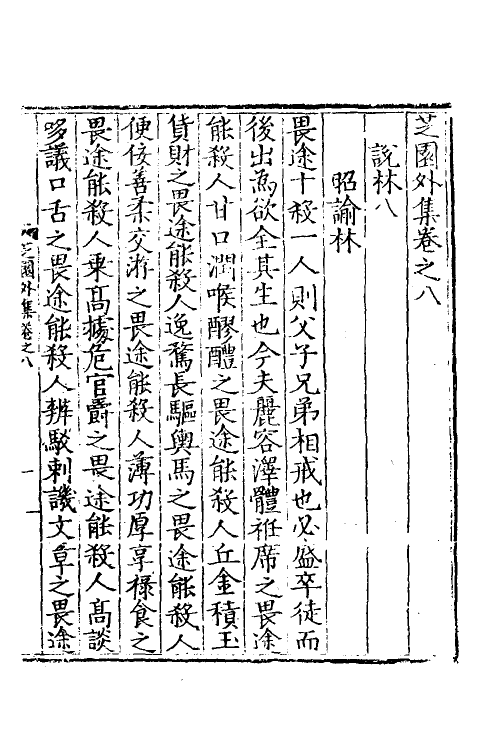 芝園外集卷之八
說林八
昭諭林
畏途十殺一人則父子兄弟相戒也必盛卒徒而
後出焉欲全其生也今夫麗容澤體袵席之畏途
能殺人甘口潤喉醪醴之畏途能殺人丘金積玉
貨財之畏途能殺人逸騖長驅輿馬之畏途能殺人
便佞善柔交游之畏途能殺人薄功厚享祿食之
畏途能殺人乘高據危官爵之畏途能殺人高談
多議口舌之畏途能殺人辨駁刺譏文章之畏途
芝園外集卷之八
一